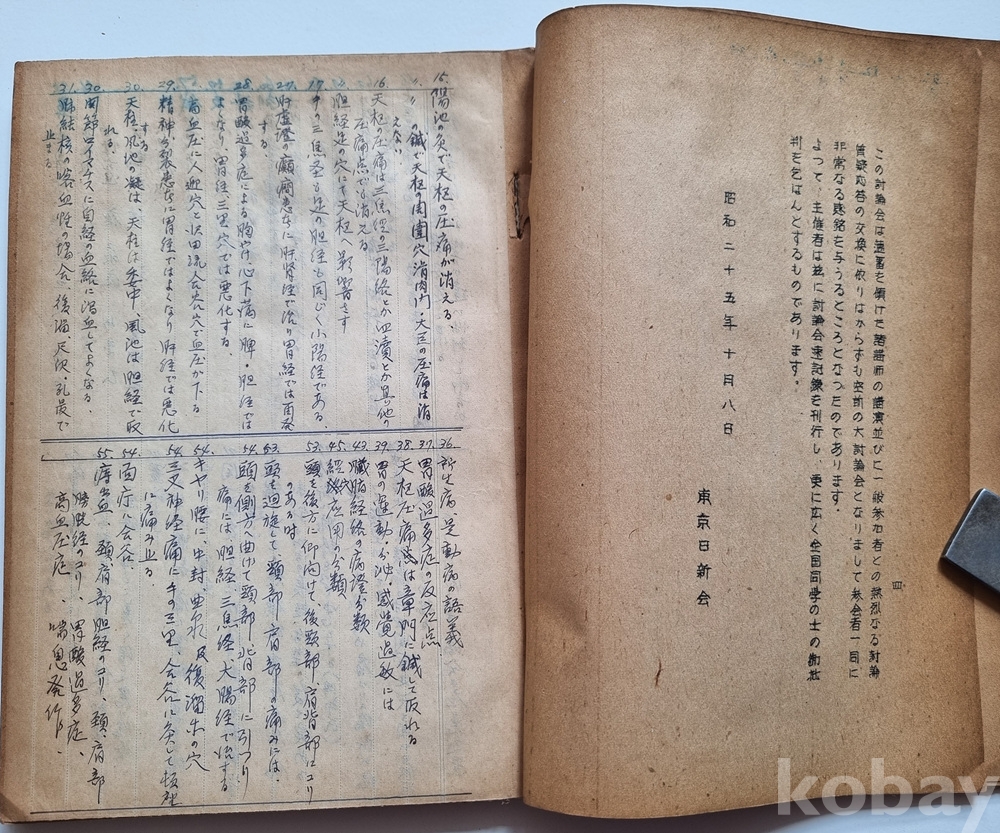 この討論会は蘊蓄を傾けた諸講師の講演並びに一般参加者との熱烈なる討論
質疑応答の交換に依りはからずも空前の大討論会となりまして参会者一同に
非常なる感銘を与うるところとなつたのであります。
よつて、主催者は茲に討論会速記録を刊行し、更に広く全国同学の士の御批
判を乞はんとするものであります。
昭和二十五年十月八日
東京日新会
四
15. 陽池の灸で天枢の圧痛が消える、
〃 〃の鍼で天枢の周囲穴滑肉門、大巨の圧痛は消
えない
16. 天枢の圧痛は三焦経の三陽絡とか四瀆とか其他の
圧痛点でも消える
〃 胆経足の穴にて天枢へ影響さす
17. 手の三焦経も足の胆経も同じく小陽経である、
27. 肝虚證の癲癇患者に肝腎経で治り胃経では再発
する、
28. 胃酸過多症による胸やけ心下痛に脾・胆経では
よくなり胃経三里穴では悪化する、
〃 高血圧に人迎穴と沢田流合谷穴で血圧が下る
29. 精神分裂患者に胃経ではよくなり肝経では悪化
する
30. 天柱、風池の凝は、天柱は委中、風池は胆経で取
れる、
30. 関節ロイマチスに自経の血絡に瀉血してよくなる、
31. 肺結核の喀血性の場合、復溜、尺沢、孔最で
止まる
36. 所生病、是動病の語義
37. 胃酸過多症の反応点
38. 天枢圧痛点は章門に鍼して取れる
39. 胃の運動・分泌・感覚過敏には
43. 臓腑経絡の病證分類
45. 経絡応用の分類
53. 頭を後方に仰向けて後頸部、肩背部にコリ
のある時
53. 頭を廻旋して、頸部、肩部の痛みには、
54. 頭を側方へ曲げて頸部、背部に引つり
痛には、胆経、三焦経、大腸経で治する
54. キヤリ腰に、中封、曲泉、及復溜等の穴
54. 三叉神経痛に手の三里、合谷に灸して
に痛み止る、
54. 面疔に合谷、
55. 痔出血、頸肩部胆経のコリ、頸・肩部
膀胱経のコリ、胃酸過多症、
高血圧症、喘息発作、
kobay